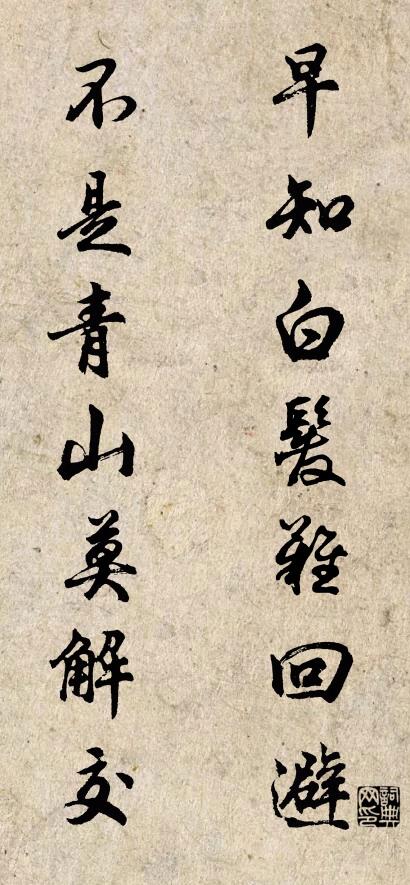 早知白髮難回避
不是青山莫解交
詞典网印